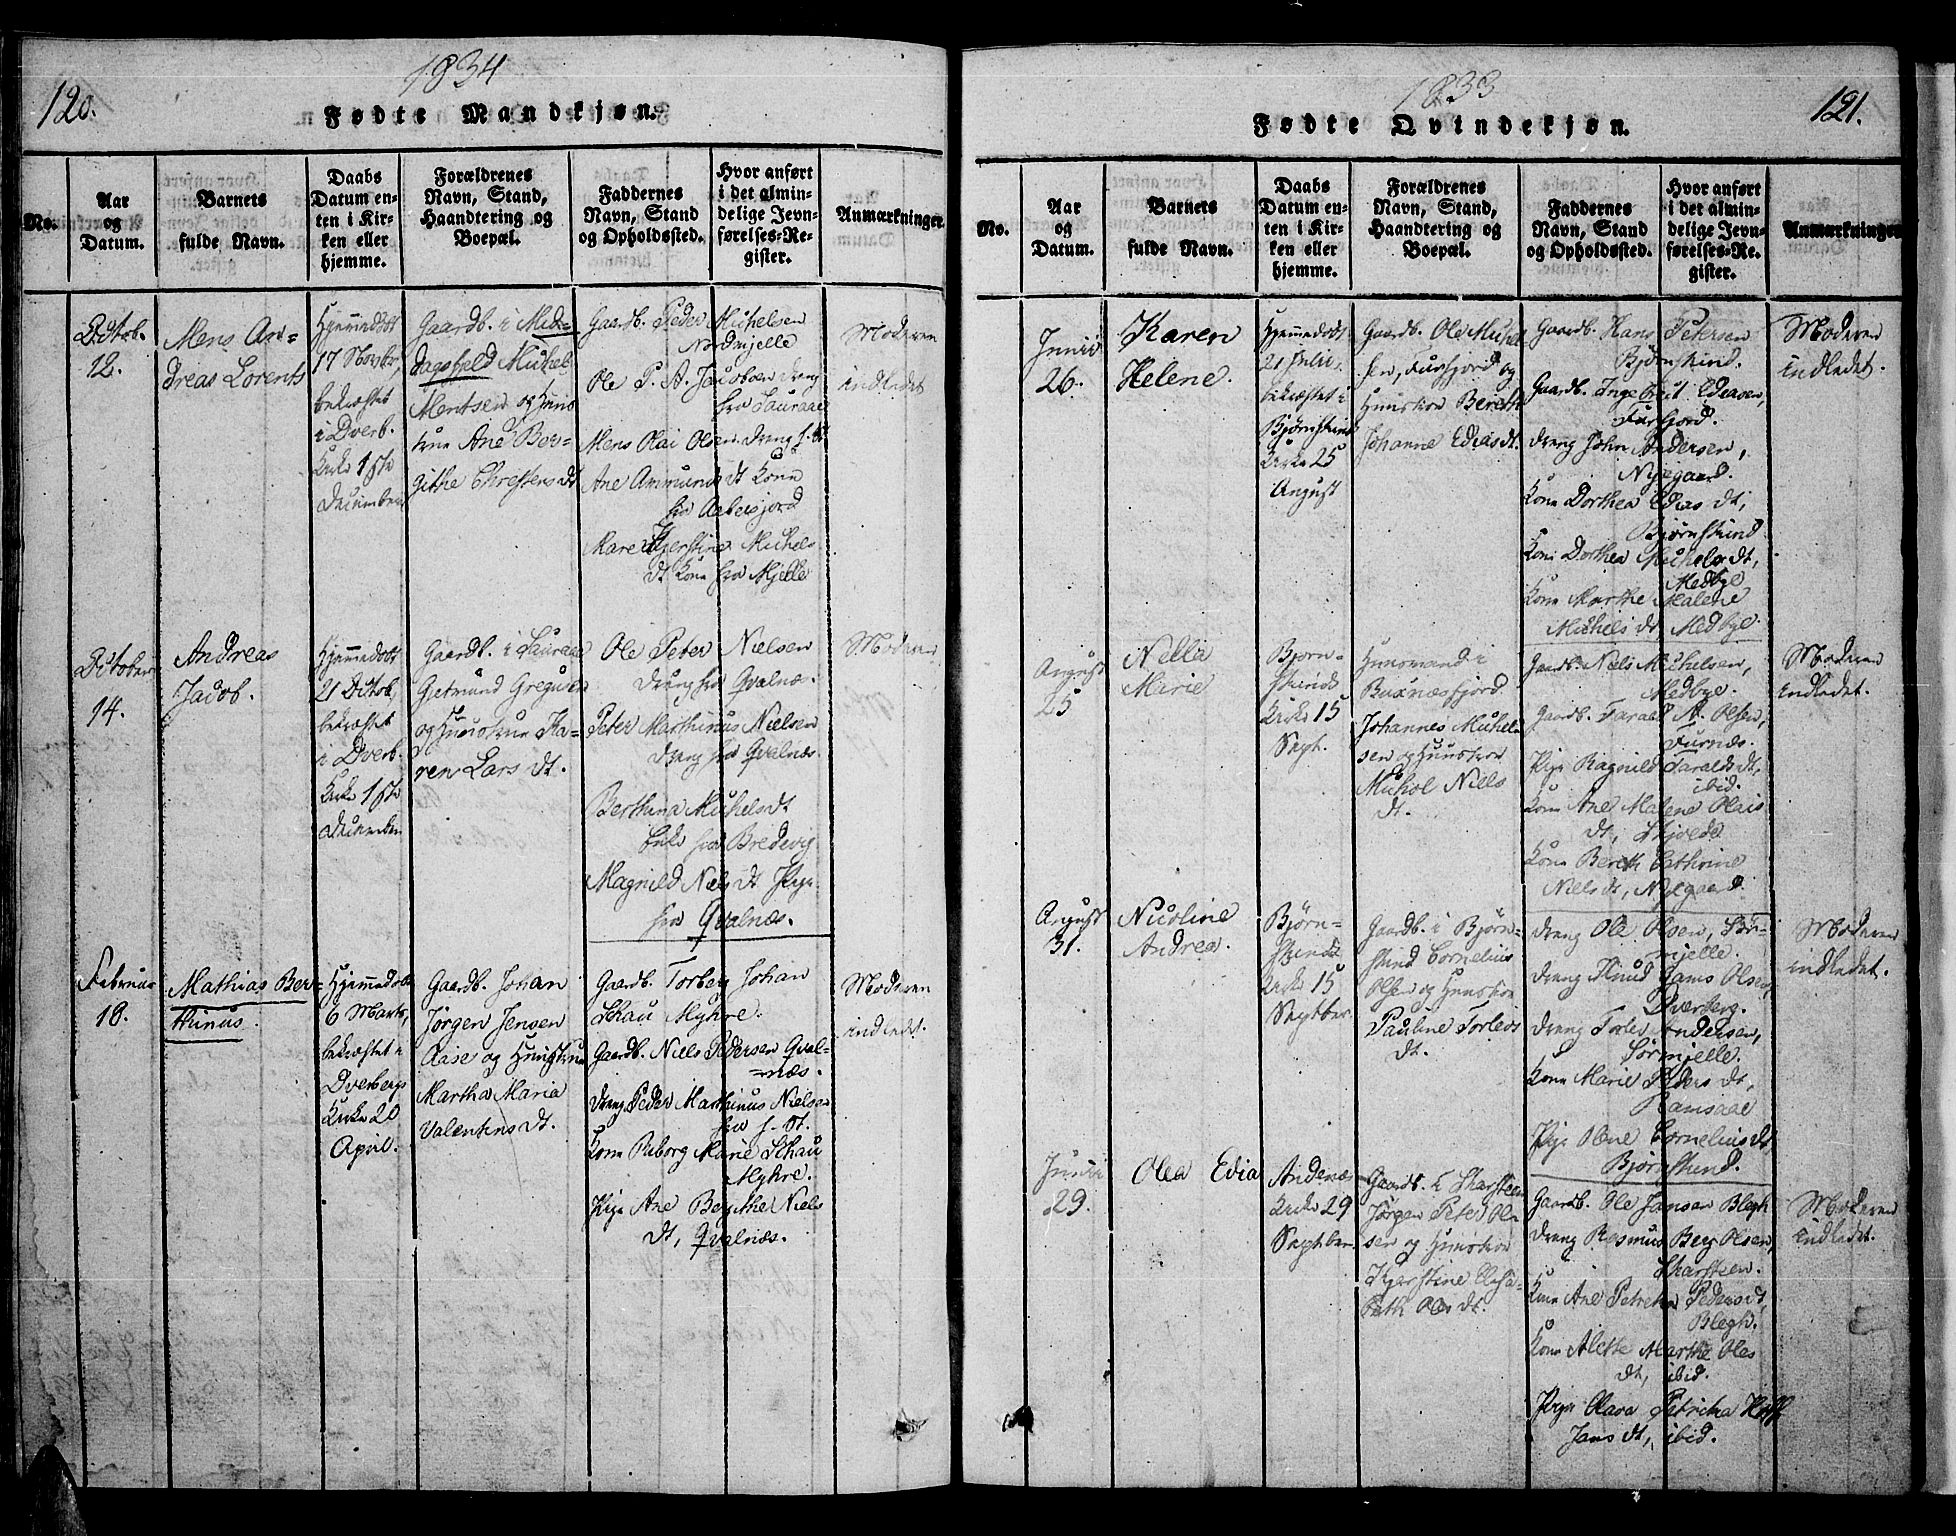 120.
1834
Fødte Mandkjøn.
No.
Aar
og
Datum.
Barnets
fulde Navn.
Daabs
Datum en-
ten i Kir-
ken eller
hjemme.
Forældrenes
Navn, Stand,
Haandtering og
Boepæl.
Faddernes
Navn, Stand
og Opholdssted.
Hvor anført
i det almin-
delige Jevn-
førelses-Re-
gister.
Anmærkninger
Octob.
12.
Mens An-
dreas Lorents
Hjemmedøbt
17 Novbr,
bekræftet
i Dverb.
Kirke 1ste
December
Gaardb. i Med-
dagsfjeld Michel
Mentsen og Huus
true Ane Ber-
githe Christensdt
Gaardb. Peder Michelsen
Nordmjelle
Ole P. A. Jacobsen dreng
fra Sauraae
Mens Olai Olsen dreng
Ane Ammunds dt Kone
fra Aabersjord
Maren Kjerstine Michels
dt Kone fra Mjelle
Moderen
indledet
October
14.
Andreas
Jacob.
Hjemmedøbt
21 Octob,
bekræftet
i Dverb.
Kirke 1ste
December
Gaardb. i Sauraae
Gjetmund Gregusen
og Huustrue Ka-
ren Lars dt.
Ole Peter Nielsen
Dreng fra Qvalnæs
Peter Marthinus Nielsen
Dreng fra Qvalnæs
Berthina Michelsdt
fra Bredevig
Magnild Niels dt Pige
fra Qvalnæs.
Moderen
Februar
18.
Mathias Ber-
thinus.
Hjemmedøbt
6 Marts,
bekræftet i
Dverbergs
Kirke 20
April.
Gaardb. Johan
Jørgen Jensen
Aase og Huustrue
Martha Maria
Valentins dt.
Gaardb. Torberg Johan
Schau Myhre.
Gaardb. Niels Pedersen Qval-
næs.
dreng Peder Marthinus Nielsen
fra s. St.
Kone Riborg Marie Schau
Myhre.
Pige Ane Bergithe Niels
dt, Qvalnæs.
Moderen
indledet.
1833
121.
Fødte Qvindekjøn.
No.
Aar
og
Datum.
Barnets
fulde Navn.
Daabs
Datum en-
ten i Kir-
ken eller
hjemme.
Forældrenes
Navn, Stand,
Haandtering og
Boepæl.
Faddernes
Navn, Stand
og Opholdssted.
Hvor anført
i det almin-
delige Jevn-
førelses-Re-
gister.
Anmærkninger
Junii
26.
Karen
Helene.
Hjemmedøbt
21 Julii,
bekræftet i
Bjørnskinds
Kirke 25
August
Gaardb. Ole Michel
sen, Fursfjord og
Huustroe Bereth
Johanne Ediasdt.
Gaardb. Hans Petersen
Bjørnskind.
Gaardb. Ingebrigt Ediasen,
Fursfjord.
dreng John Andersen,
Nygaard.
Kone Dorthea Edias dt,
Bjørnskind
Kone Dorthea Michels dt,
Medbye
Kone Marthe Malene
Michels dt Medbye.
Moderen
indledet.
August
25
Nella
Marie
Bjørn-
skinds
Kirke 15
Sept.
Huusmand i
Buxnæsfjord
Johannes Michel-
sen og Huustroe
Michol Niels
dt.
Gaardb. Niels Michelsen,
Medbye.
Gaardb. Farald A. Olsen,
Furnæs.
Pige Ragnild Faraldsdt,
ibid.
Kone Ane Malene Olais
dt,
Kone Bereth Cathrine
Niels dt, Nygaard.
Moderen
indledet.
August
31.
Nicoline
Andrea.
Bjørn-
skinds
Kirke 15
Septber.
Gaardb. i Bjørn-
skind Cornelius
Olsen og Huustroe
Pauline Torleds
dt.
dreng Ole Olsen, Sør-
mjelle.
dreng Knud Jams Olsen,
Dverberg.
dreng Torlev Andersen,
Sørmjelle.
Kone Marie Peders dt,
Ramsaae
Pige Olene Cornelius dt,
Bjørnskind.
Moderen
indledet.
Junii
29.
Olea Edia
Andenæs
Kirke 29
Septber
Gaardb. i Skarsteen
Jørgen Peter Ol-
sen og Huustroe
Kjerstine Elisa-
beth Oles dt.
Gaardb. Ole Jansen Blegh
Dreng Rasmus Berg Olsen,
Skarsteen.
Kone Ane Petricha Pedersdt,
Blegh.
Kone Alette Marthe Oles
dt, ibid.
Pige Olava Petricha
Jans dt, ibid.
Moderen
indledet.